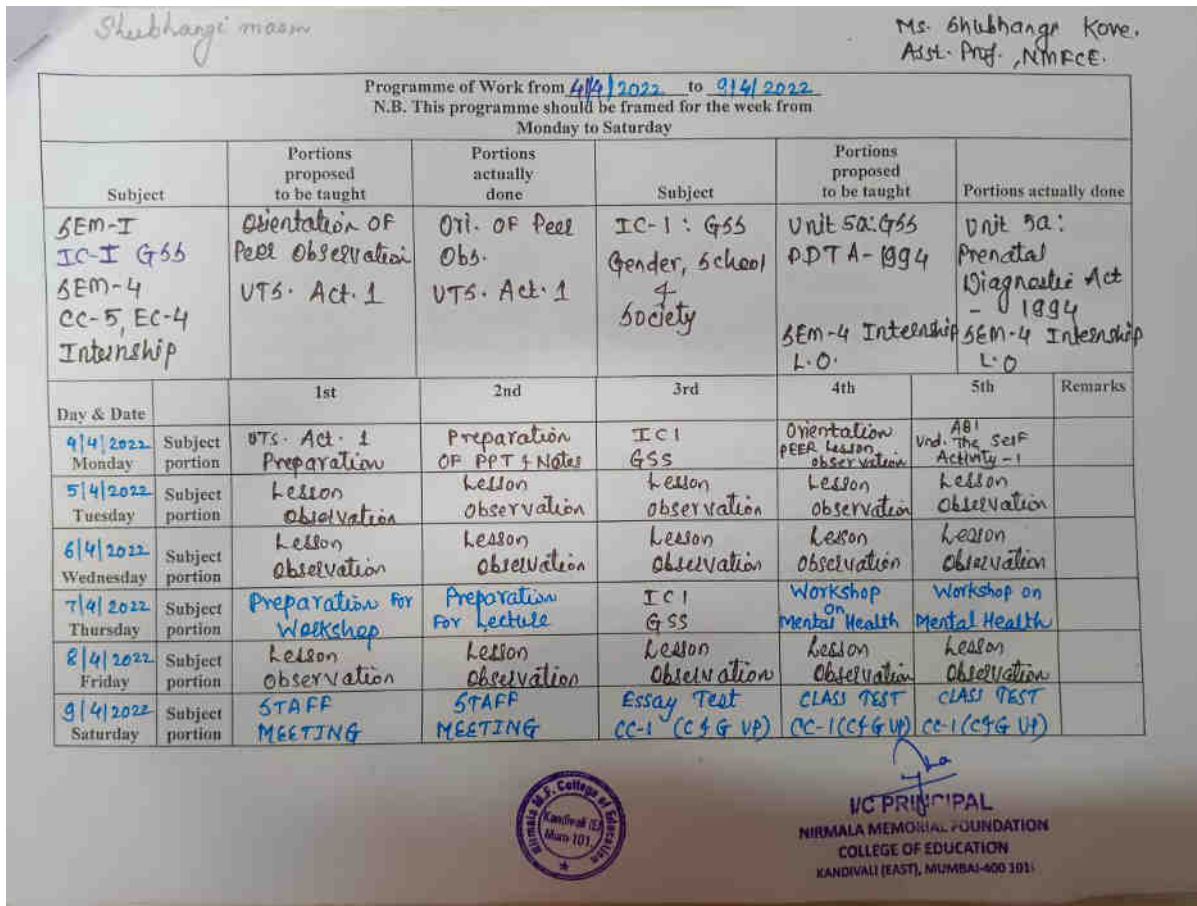 Shubhangi maam
Ms. Shubhangi Kove.
Asst. Prof., NMFCE.
Programme of Work from 4/4/2022 to 9/4/2022
N.B. This programme should be framed for the week from
Monday to Saturday
Subject
Portions proposed to be taught
Portions actually done
Subject
Portions proposed to be taught
Portions actually done
SEM-I
IC-I GSS
SEM-4
CC-5, EC-4
Internship
Orientation OF
Peer Observation
UTS. Act. 1
Ori. OF Peer
Obs.
UTS. Act. 1
IC-1: GSS
Gender, School
&
Society
Unit 5a: GSS
PDTA-1994
SEM-4 Internship
L.O.
Unit 5a:
Prenatal
Diagnostic Act
- 1994
SEM-4 Internship
L.O
Day & Date 1st 2nd 3rd 4th 5th Remarks
4/4/2022 Monday
Subject portion
UTS. Act. 1
Preparation
Preparation
OF PPT & Notes
IC1
GSS
Orientation
PEER Lesson
observation
AB1
Und. The Self
Activity-1
5/4/2022 Tuesday
Subject portion
Lesson
observation
Lesson
observation
Lesson
observation
Lesson
observation
Lesson
observation
6/4/2022 Wednesday
Subject portion
Lesson
observation
Lesson
observation
Lesson
observation
Lesson
observation
Lesson
observation
7/4/2022 Thursday
Subject portion
Preparation For
Workshop
Preparation
For Lecture
IC1
GSS
Workshop
on
Mental Health
Workshop on
Mental Health
8/4/2022 Friday
Subject portion
Lesson
observation
Lesson
observation
Lesson
observation
Lesson
observation
Lesson
observation
9/4/2022 Saturday
Subject portion
STAFF
MEETING
STAFF
MEETING
Essay Test
CC-1 (C & G UP)
CLASS TEST
CC-1 (C & G UP)
CLASS TEST
CC-1 (C & G UP)
Nirmala M.F. College of Education
Kandivali (E)
Mum-101.
I/C PRINCIPAL
NIRMALA MEMORIAL FOUNDATION
COLLEGE OF EDUCATION
KANDIVALI (EAST), MUMBAI-400 101